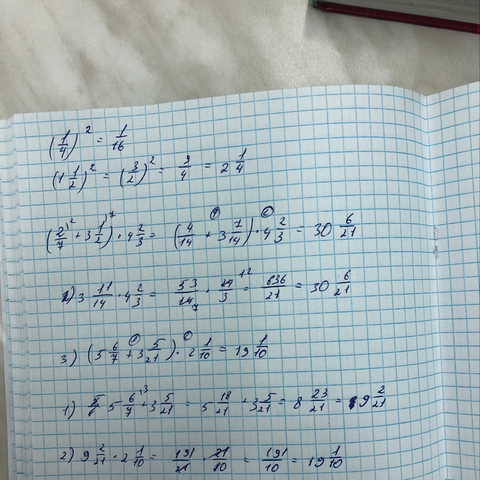 (1/4)² = 1/16
(1 1/2)² = (3/2)² = 9/4 = 2 1/4
(2/7 + 3 1/2) · 4 2/3 = (4/14 + 3 7/14) · 4 2/3 = 30 6/21
2) 3 11/14 · 4 2/3 = 53/14 · 14/3 = 636/21 = 30 6/21
3) (5 6/7 + 3 5/21) · 2 1/10 = 19 1/10
1) 5 6/7 + 3 5/21 = 5 18/21 + 3 5/21 = 8 23/21 = 9 2/21
2) 9 2/21 · 2 1/10 = 191/21 · 21/10 = 191/10 = 19 1/10